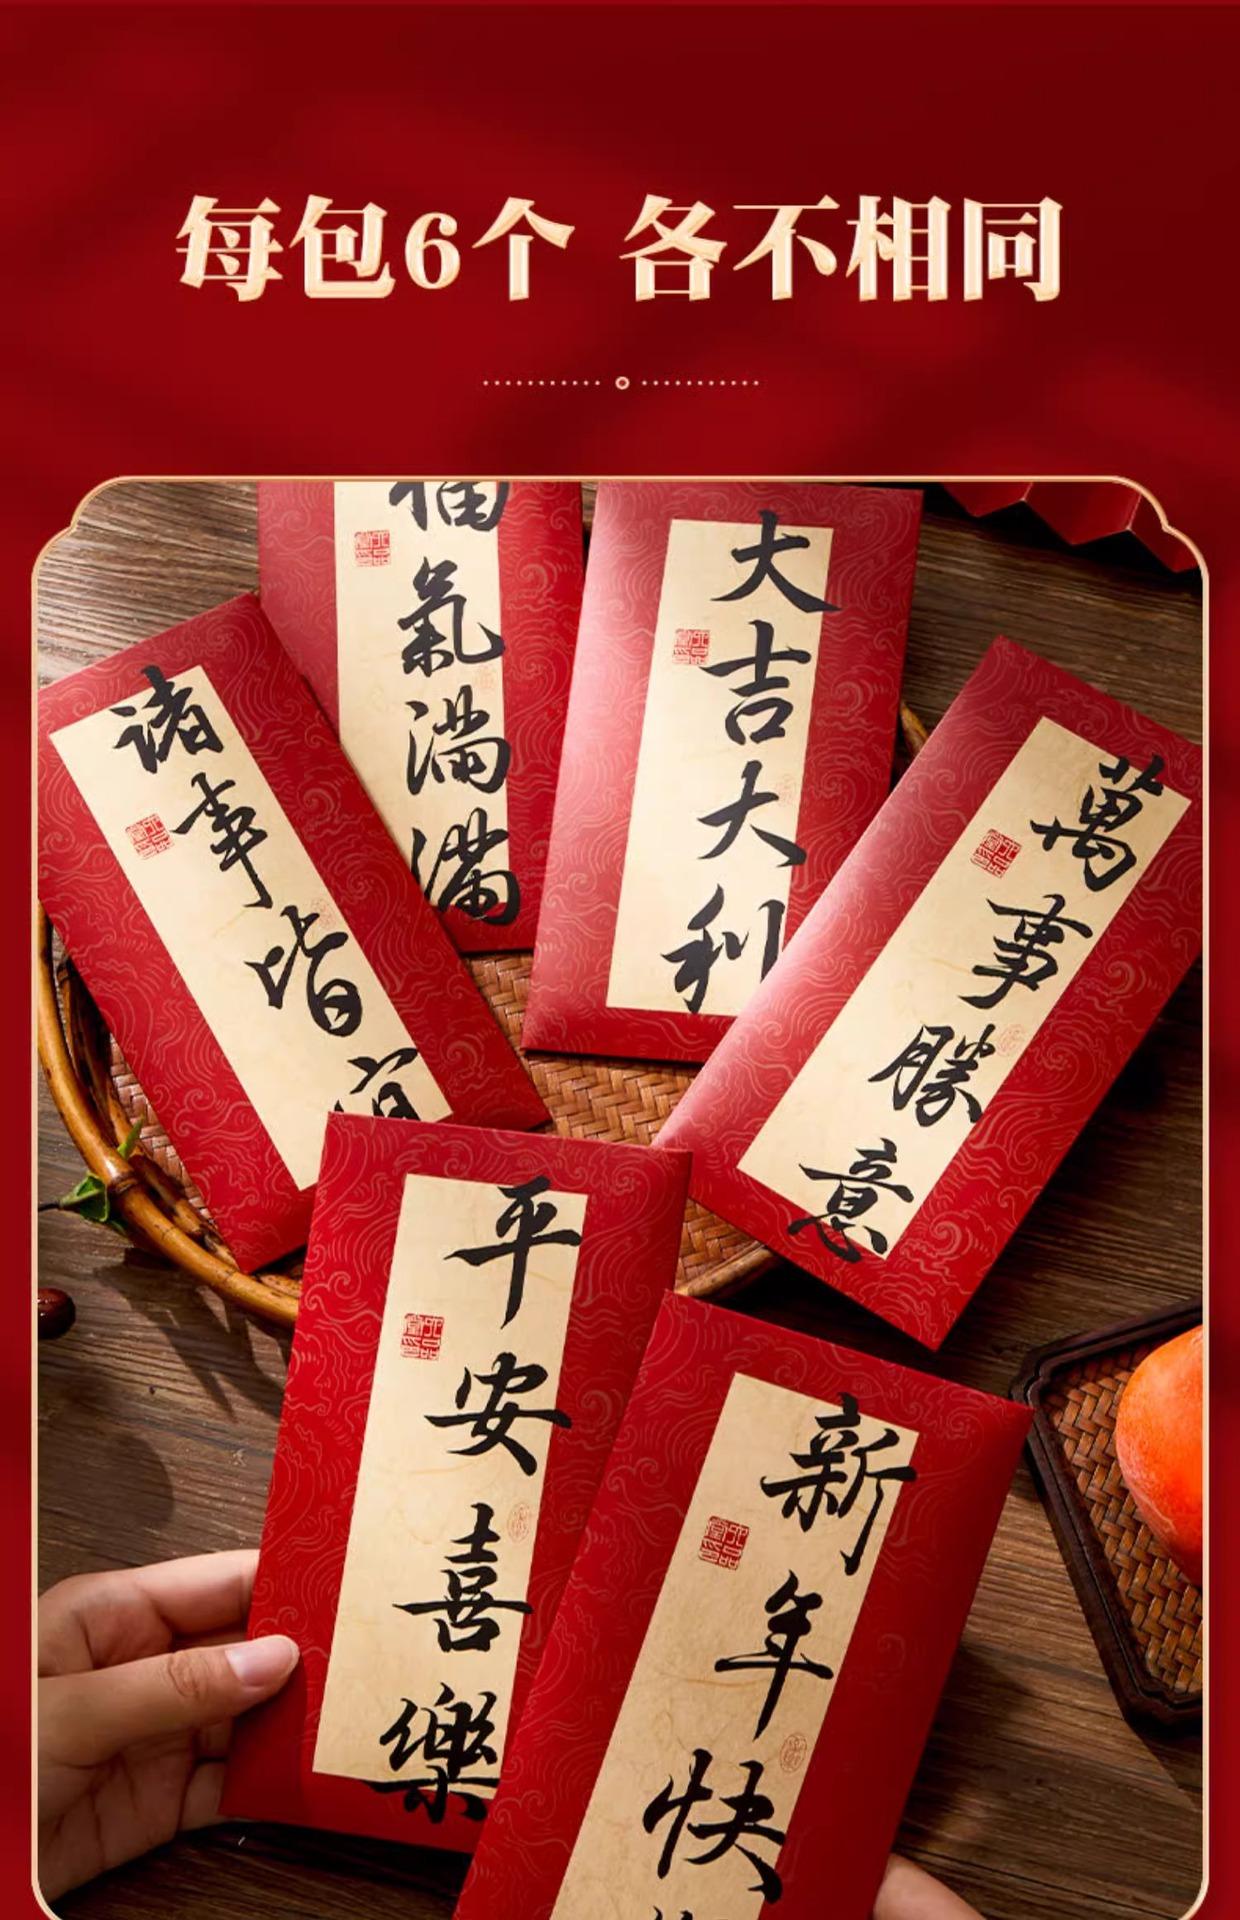 每包6个 各不相同
福氣满滿
大吉大利
諸事皆宜
萬事勝意
平安喜樂
新年快